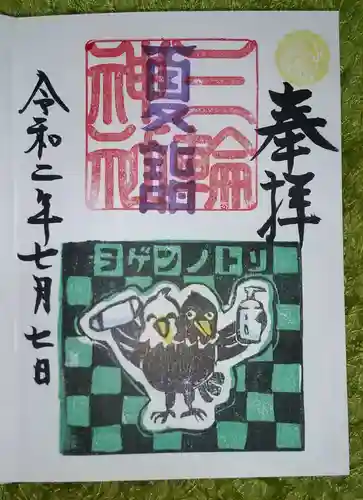 奉拝
三輪神社
夏詣
令和二年七月七日
ヨゲンノトリ